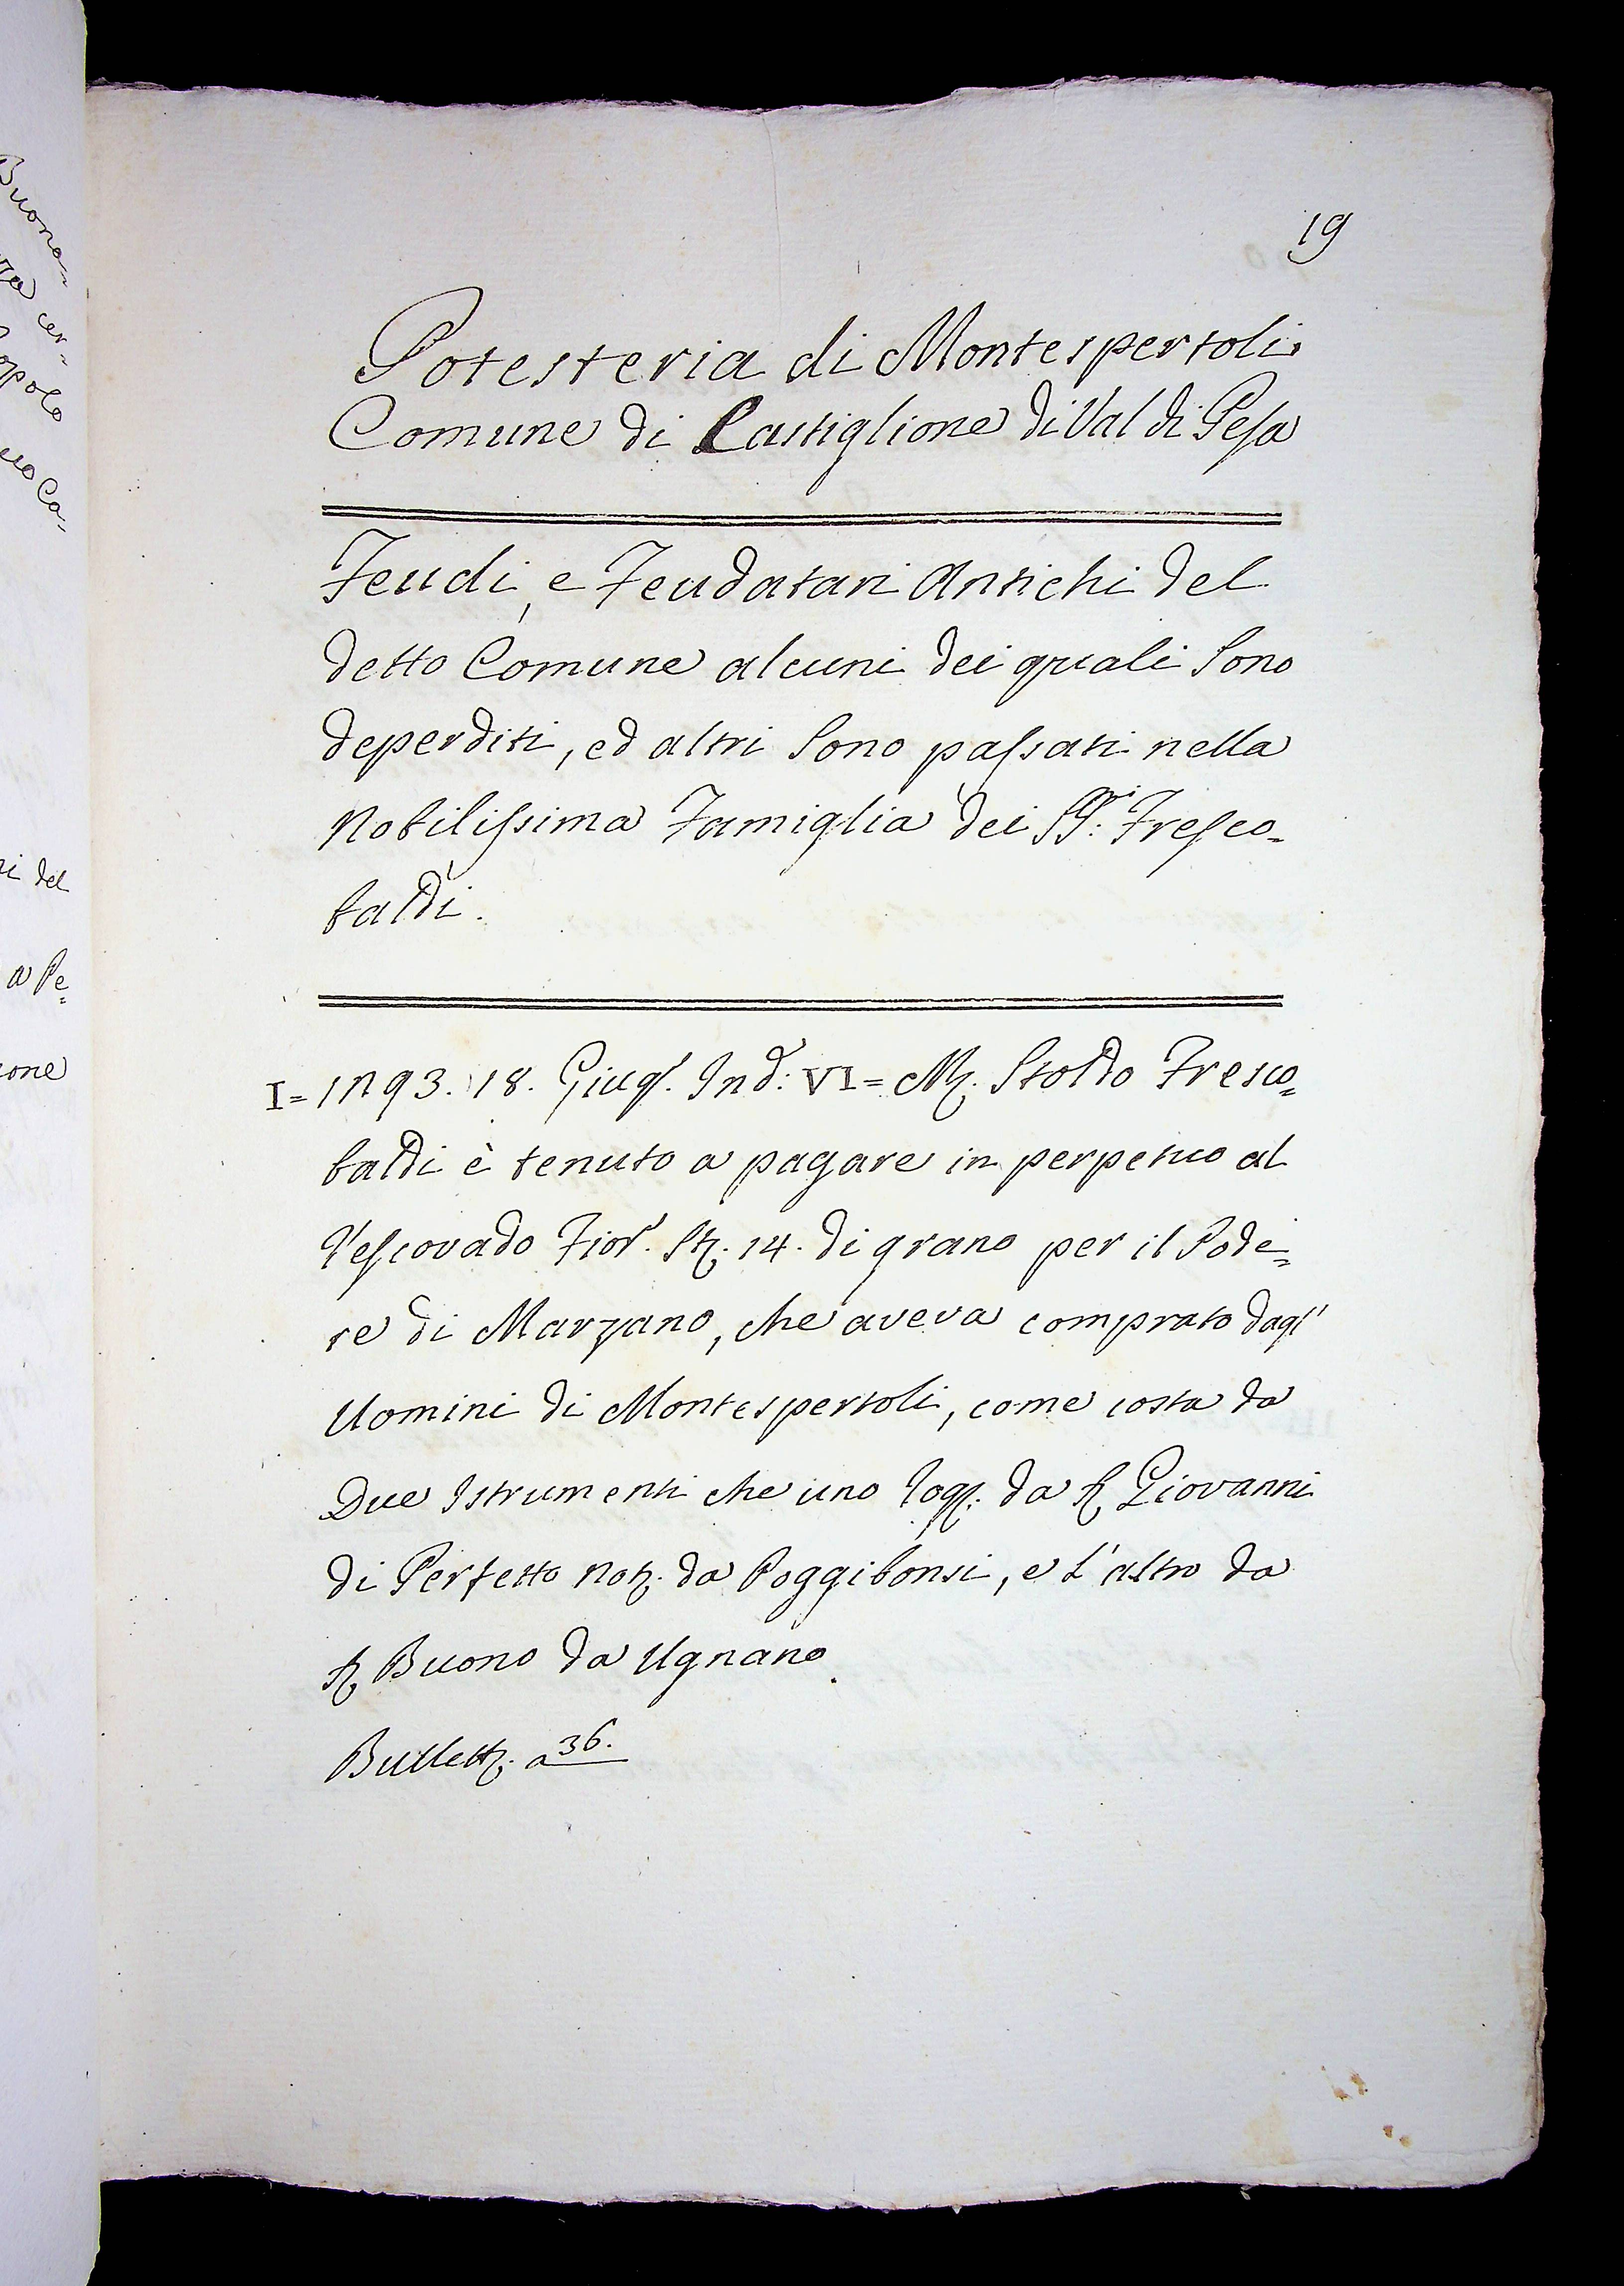 Buona=
za cer=
opolo
uo Ca=
ri del
a Pe=
one
19
Potesteria di Montespertoli
Comune di Castiglione di Val di Pesa
Feudi, e Feudatari Antichi del
detto Comune alcuni dei quali sono
deperditi, ed altri sono passati nella
Nobilissima Famiglia dei SS:ri Fresco=
baldi.
I = 1293. 18. Giug. Ind: VI = M. Stoldo Fresco=
baldi è tenuto a pagare in perpetuo al
Vescovado Fior. St. 14. di grano per il Pode=
re di Marzano, che aveva comprato dagl'
Uomini di Montespertoli, come costa da
Due Istrumenti che uno rog. da S. Giovanni
di Perfetto Not. da Poggibonsi, e l'altro da
S. Buono da Ugnano.
Bullett. a 36.